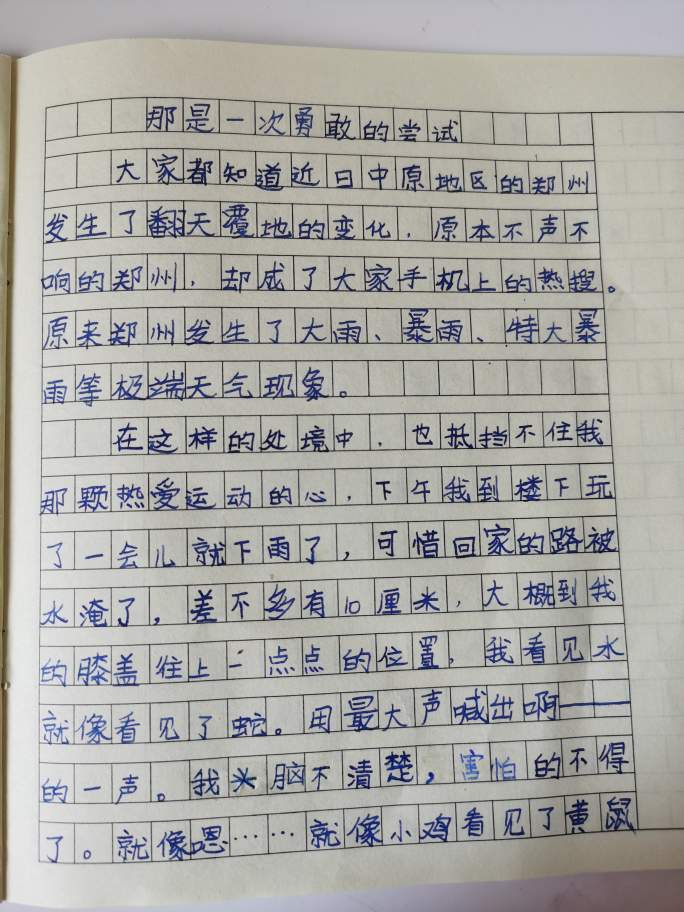 那是一次勇敢的尝试
大家都知道近日中原地区的郑州
发生了翻天覆地的变化，原本不声不
响的郑州，却成了大家手机上的热搜。
原来郑州发生了大雨、暴雨、特大暴
雨等极端天气现象。
在这样的处境中，也抵挡不住我
那颗热爱运动的心，下午我到楼下玩
了一会儿就下雨了，可惜回家的路被
水淹了，差不多有10厘米，大概到我
的膝盖往上一点点的位置，我看见水
就像看见了蛇。用最大声喊出啊——
的一声。我头脑不清楚，害怕的不得
了。就像嗯……就像小鸡看见了黄鼠